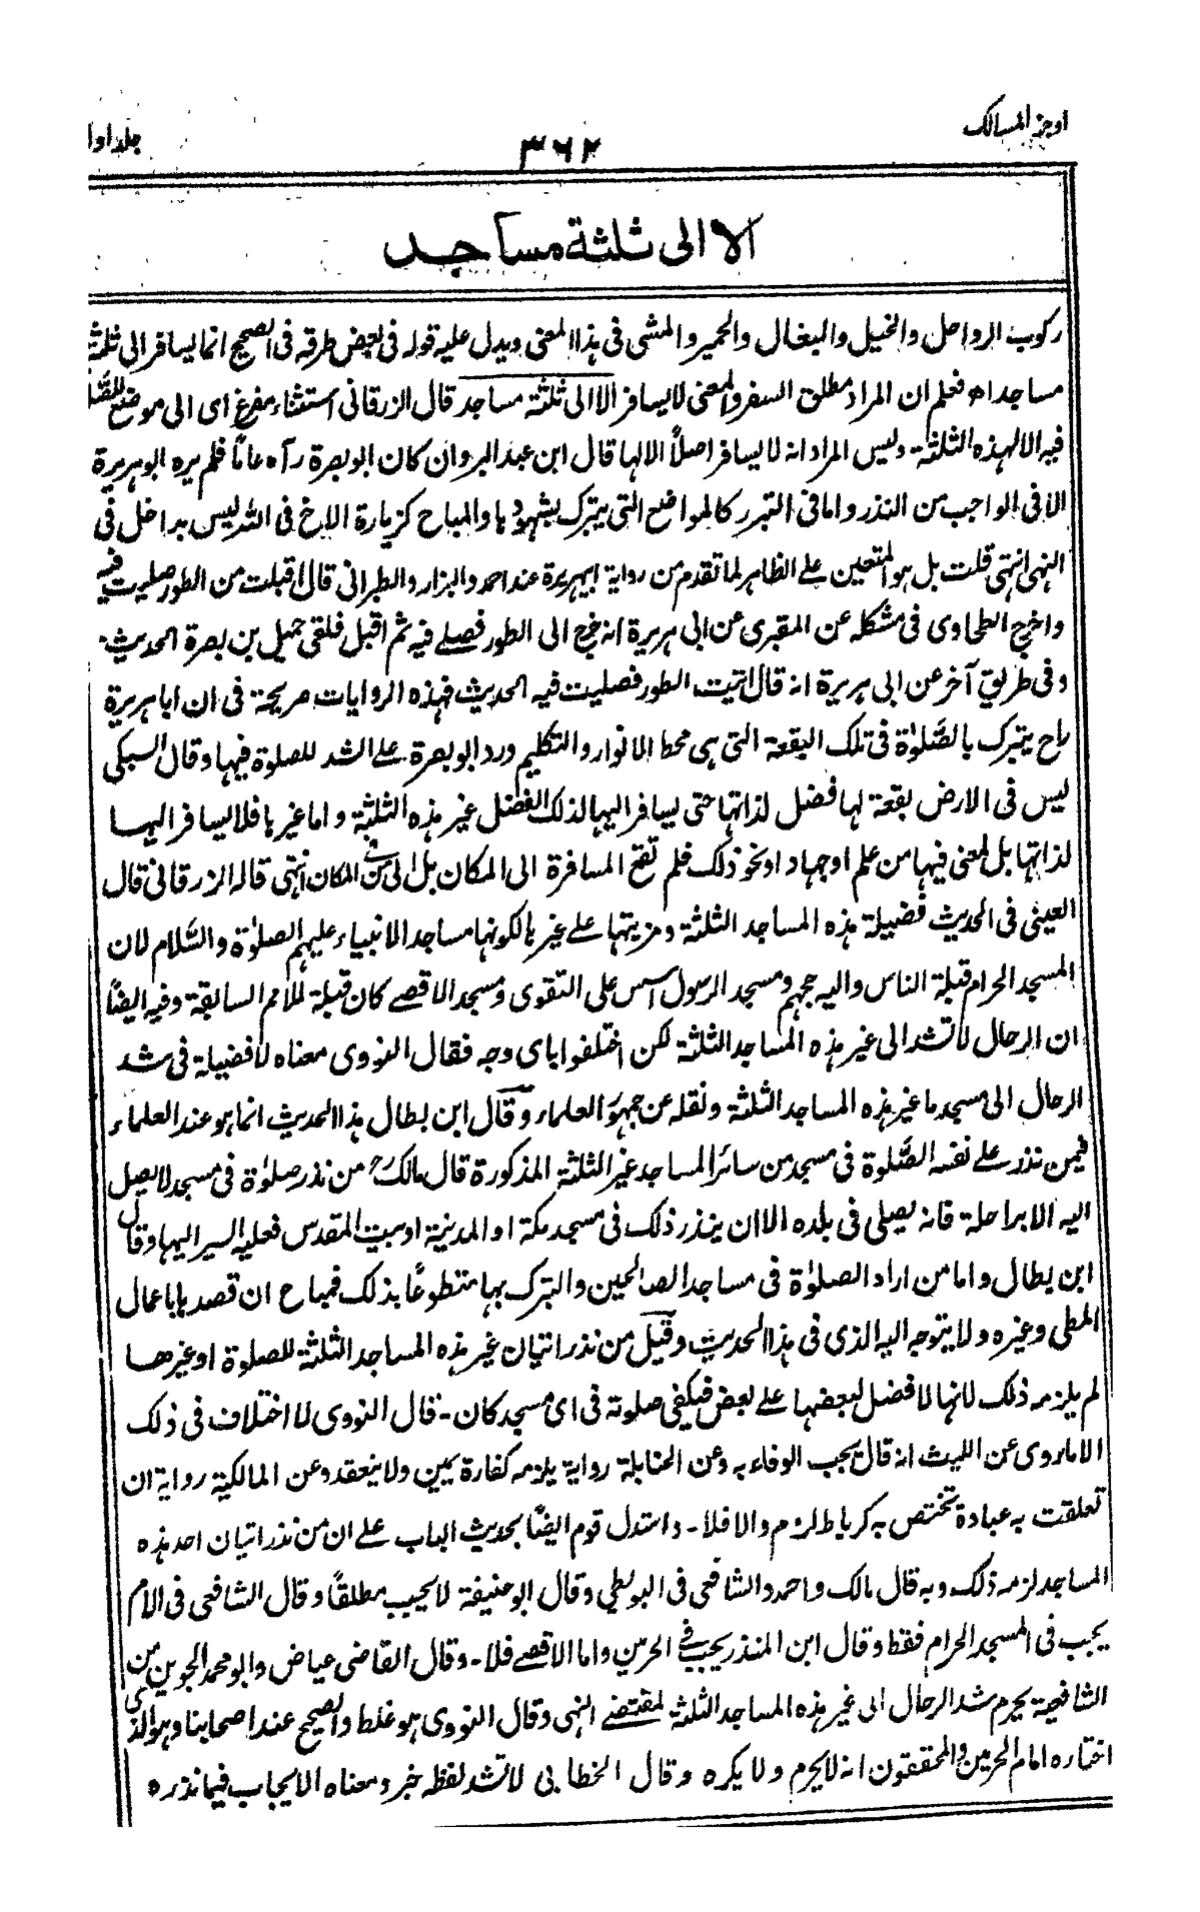 اوجز المسالك
۳۶۲
جلد اول
الا الى ثلثة مساجد
ركوب الرواحل والخيل والبغال والحمير والمشى فى هذا المعنى ويدل عليه قوله فى بعض طرقه فى الصحيح انما يسافر الى ثلثة
مساجد اه فعلم ان المراد مطلق السفر والمعنى لا يسافر الا الى ثلثة مساجد قال الزرقانى استثناء مفرغ اى الى موضع للصلوة
فيه الا لهذه الثلثة وليس المراد انه لا يسافر اصلاً الا لها قال ابن عبد البر وان كان ابو بصرة رآه عامًا فلم يره ابو هريرة
الا فى الواجب من النذر واما فى التبرر كالمواضع التى يتبرك بشهودها والمباح كزيارة الاخ فى الله ليس بداخل فى
النهى انتهى قلت بل هو المتعين على الظاهر لما تقدم من رواية ابيهريرة عند احمد والبزار والطبرانى قال اقبلت من الطور صليت فيه
واخرج الطحاوى فى مشكله عن المقبرى عن ابى هريرة انه خرج الى الطور فصلى فيه ثم اقبل فلقى حميل بن بصرة الحديث
وفى طريق آخر عن ابى هريرة انه قال اتيت الطور فصليت فيه الحديث فهذه الروايات صريحة فى ان ابا هريرة
راح يتبرك بالصَّلوٰة فى تلك البقعة التى هى محط الانوار والتكليم ورد ابو بصرة على الشد للصلوة فيها وقال السبكى
ليس فى الارض بقعة لها فضل لذاتها حتى يسافر اليها لذلك الفضل غير هذه الثلثة واما غيرها فلا يسافر اليها
لذاتها بل لمعنى فيها من علم او جهاد او نحو ذلك فلم تقع المسافرة الى المكان بل الى من فى المكان انتهى قاله الزرقانى قال
العينى فى الحديث فضيلة هذه المساجد الثلثة ومزيتها على غيرها لكونها مساجد الانبياء عليهم الصلوٰة والسَّلام لان
المسجد الحرام قبلة الناس واليه حجهم ومسجد الرسول اسس على التقوى ومسجد الاقصى كان قبلة للامم السابقة وفيه ايضًا
ان الرحال لا تشد الى غير هذه المساجد الثلثة لكن اختلفوا باى وجه فقال النووى معناه لا فضيلة فى شد
الرحال الى مسجد ما غير هذه المساجد الثلثة ونقله عن جمهور العلماء وقال ابن بطال هذا الحديث انما هو عند العلماء
فيمن نذر على نفسه الصَّلوة فى مسجد من سائر المساجد غير الثلثة المذكورة قال مالك رح من نذر صلوٰة فى مسجد لا يصل
اليه الا براحلة فانه يصلى فى بلده الا ان ينذر ذلك فى مسجد مكة او المدينة او بيت المقدس فعليه السير اليها وقال
ابن بطال واما من اراد الصلوٰة فى مساجد الصالحين والتبرك بها متطوعًا بذلك فمباح ان قصدها باعمال
المطى وغيره ولا يتوجه اليه الذى فى هذا الحديث وقيل من نذر اتيان غير هذه المساجد الثلثة للصلوة او غيرها
لم يلزمه ذلك لانها لا فضل لبعضها على بعض فيكفى صلوته فى اى مسجد كان - قال النووى لا اختلاف فى ذلك
الا ما روى عن الليث انه قال يجب الوفاء به وعن الحنابلة رواية يلزمه كفارة يمين ولا ينعقد وعن المالكية رواية ان
تعلقت به عبادة تختص به كرباط لزم والا فلا - واستدل قوم ايضًا بحديث الباب على ان من نذر اتيان احد هذه
المساجد لزمه ذلك وبه قال مالك واحمد والشافعى فى البويطى وقال ابو حنيفة لا يجب مطلقًا وقال الشافعى فى الام
يجب فى المسجد الحرام فقط وقال ابن المنذر يجب فى الحرمين واما الاقصى فلا - وقال القاضى عياض وابو محمد الجوينى من
الشافعية يحرم شد الرحال الى غير هذه المساجد الثلثة لمقتضى النهى وقال النووى هو غلط والصحيح عند اصحابنا وهو الذى
اختاره امام الحرمين والمحققون انه لا يحرم ولا يكره وقال الخطابى لا تشد لفظه خبر ومعناه الايجاب فيما نذره